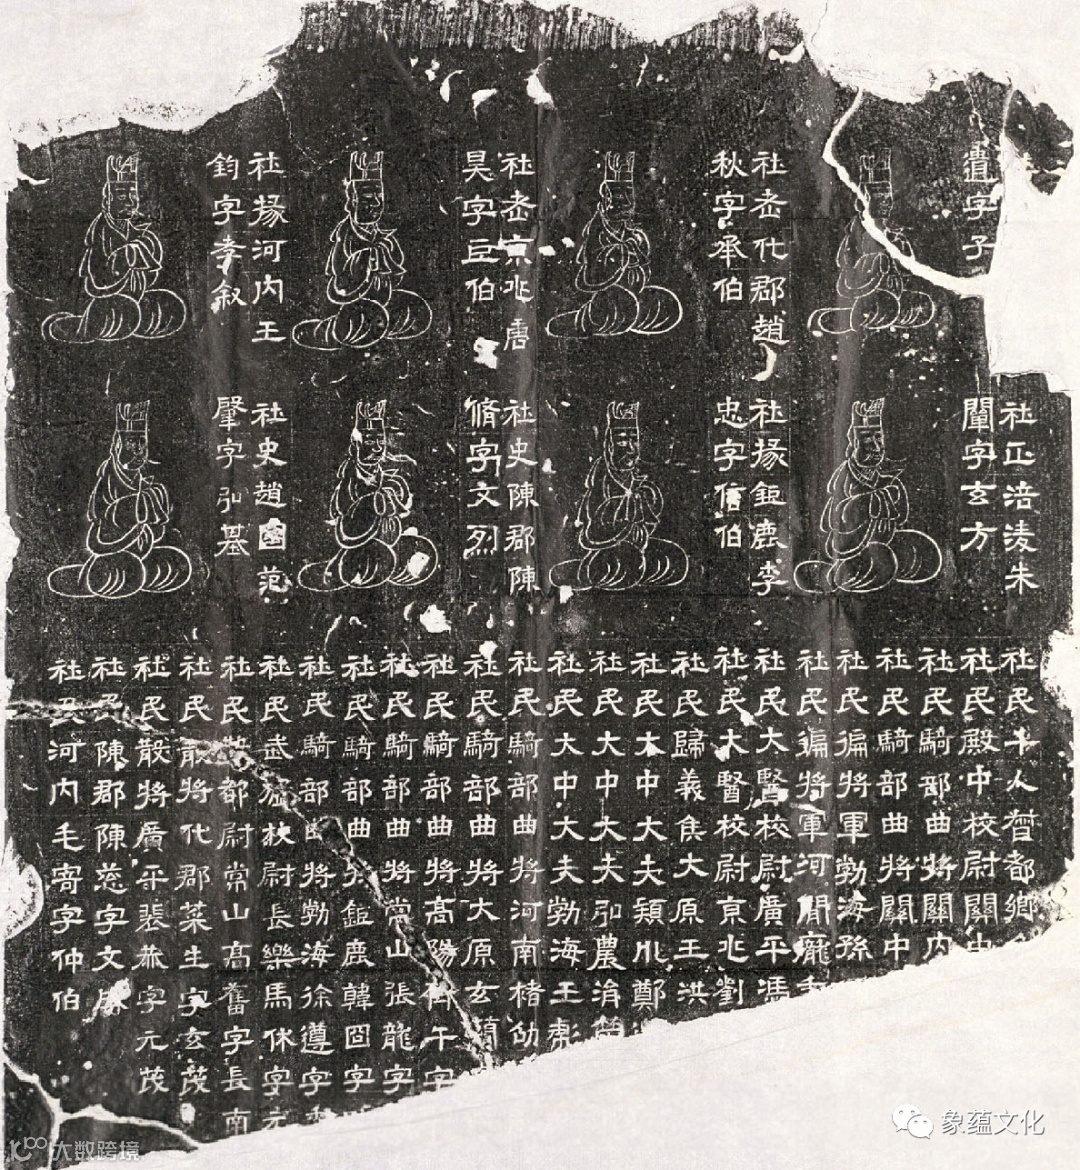 遺字子
社老代郡趙
秋字承伯
社老京兆唐
昊字巨伯
社掾河内王
鈞字孝叙
社正涪淩朱
闡字玄方
社掾鉅鹿李
忠字信伯
社史陳郡陳
脩字文烈
社史趙國范
肇字弘基
社民千人督都鄉
社民殿中校尉關中
社民騎部曲將關内
社民騎部曲將關中
社民偏將軍勃海孫
社民偏將軍河間龐
社民大醫校尉廣平馮
社民大醫校尉京兆劉
社民歸義侯大原王洪
社民大中大夫潁川鄭
社民大中大夫弘農涓
社民大中大夫勃海王
社民騎部曲將河南楮劭
社民騎部曲將大原玄
社民騎部曲將高陽午字
社民騎部曲將常山張龍字
社民騎部曲將鉅鹿韓囧字
社民騎部曲將勃海徐遵字
社民武猛校尉長樂馬休字元
社民散都尉常山高舊字長南
社民散將代郡萊生字玄茂
社民散將廣平裴字元茂
社民陳郡陳慈字文
社民河内毛寄字仲伯
象蕴文化
大数跨境